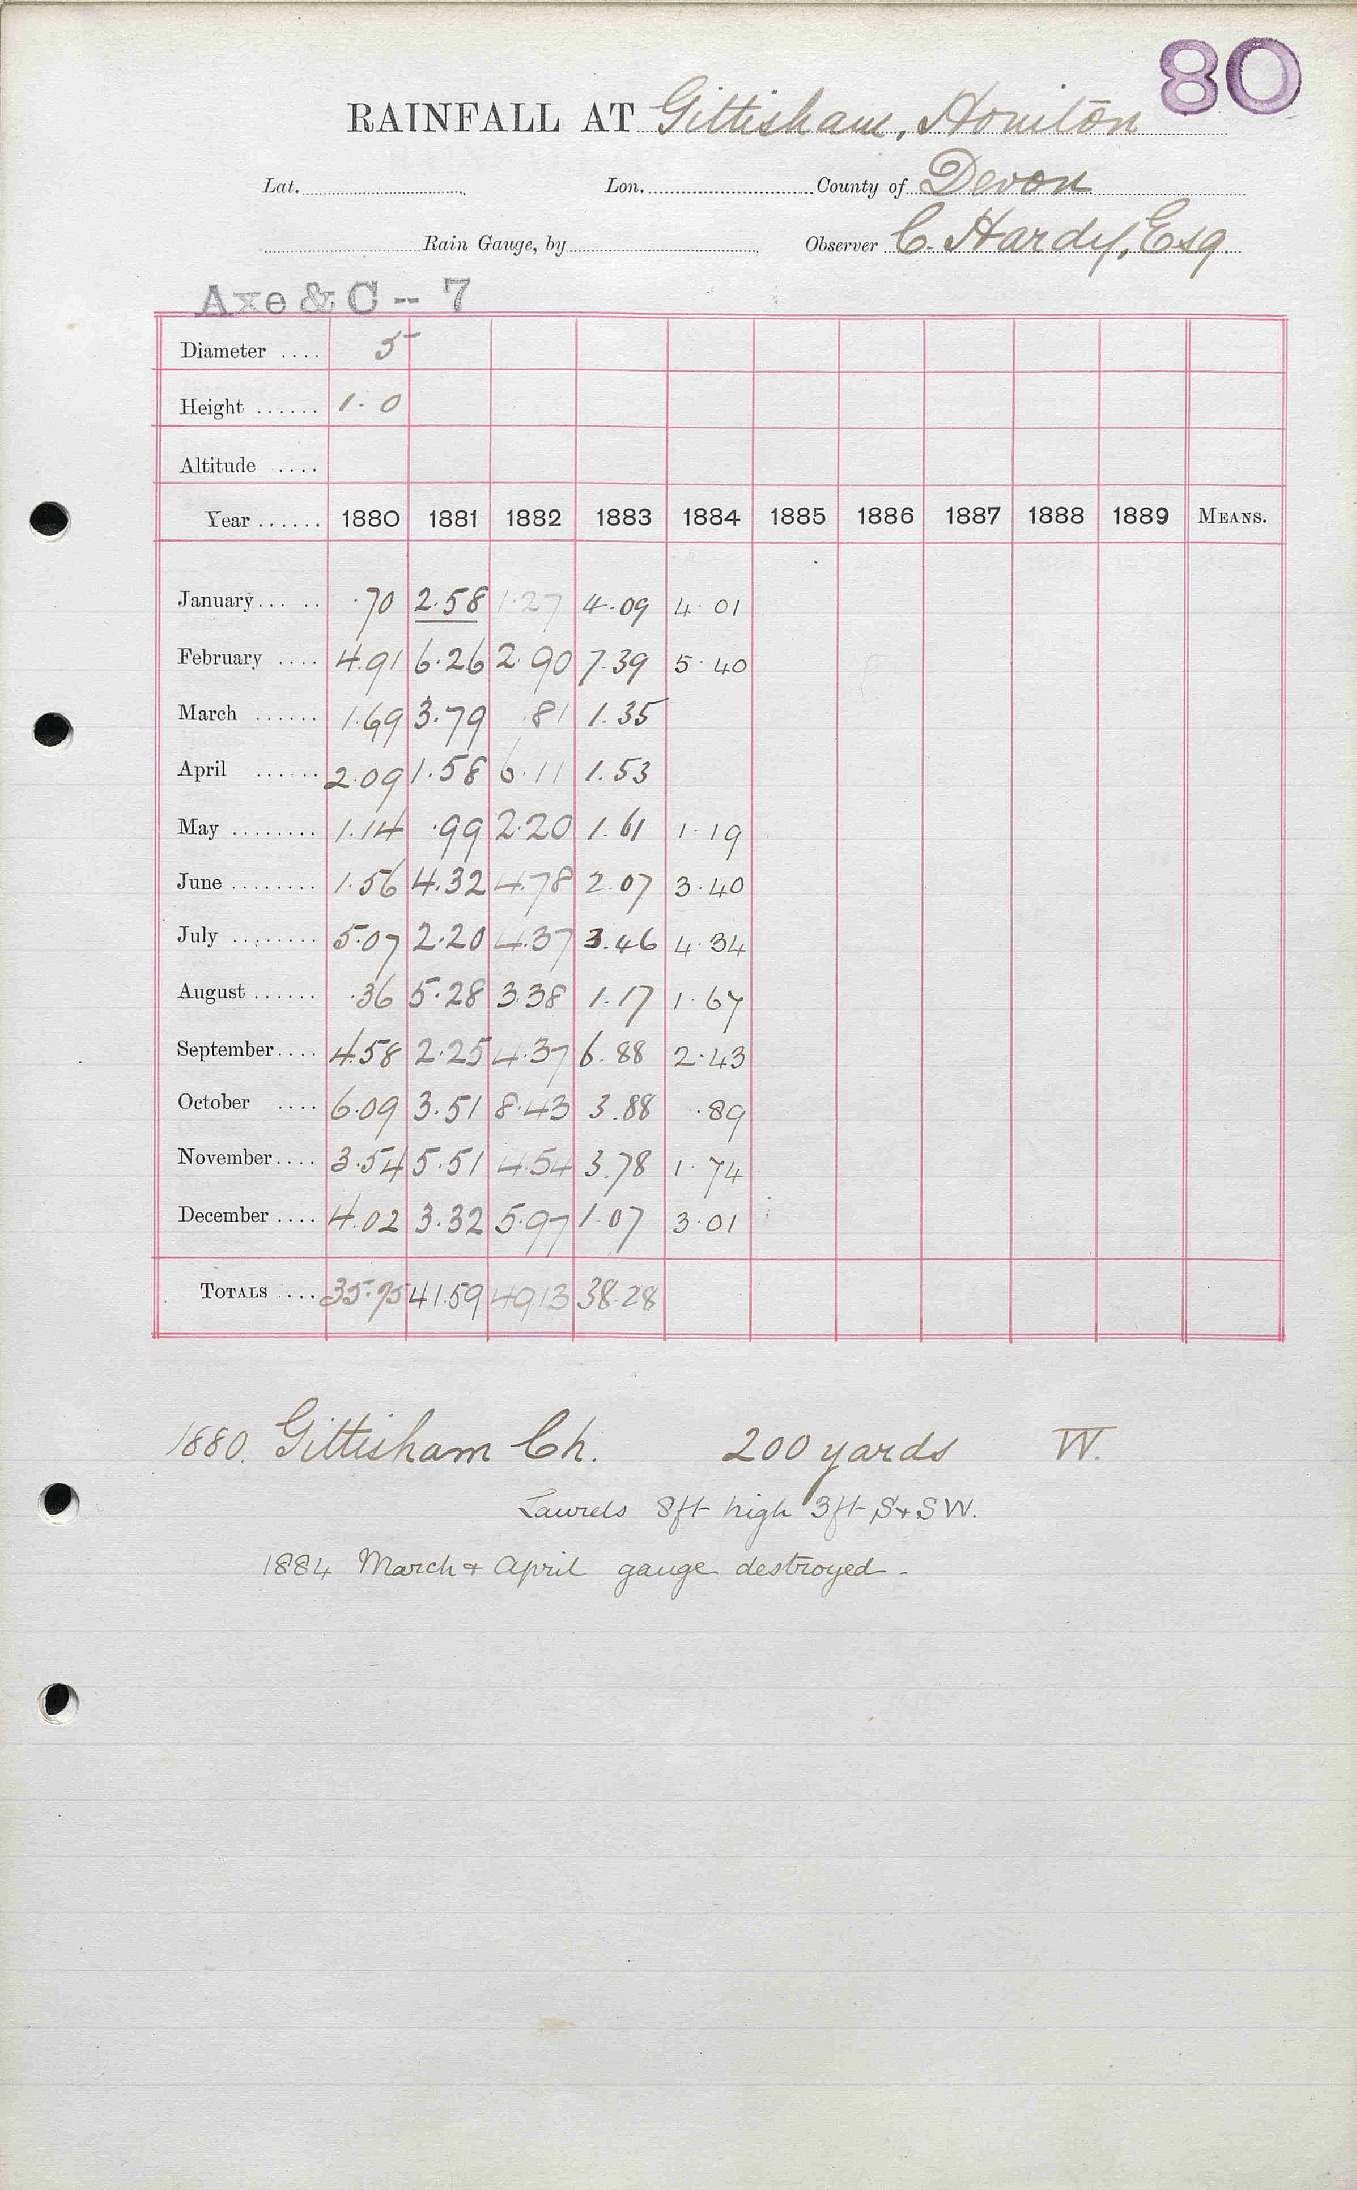 80
RAINFALL AT Gittisham, Honiton
Lat. Lon. County of Devon
Rain Gauge, by Observer C. Hardy, Esq.
Axe & C -- 7
Diameter .... 5
Height ...... 1.0
Altitude ....
Year ...... 1880 1881 1882 1883 1884 1885 1886 1887 1888 1889 MEANS.
January ... .. .70 2.58 1.27 4.09 4.01
February .... 4.91 6.26 2.90 7.39 5.40
March ...... 1.69 3.79 .81 1.35
April ...... 2.09 1.58 6.11 1.53
May ........ 1.14 .99 2.20 1.61 1.19
June ........ 1.56 4.32 4.78 2.07 3.40
July ........ 5.07 2.20 4.37 3.46 4.34
August ...... .36 5.28 3.38 1.17 1.67
September .... 4.58 2.25 4.37 6.88 2.43
October .... 6.09 3.51 8.43 3.88 .89
November .... 3.54 5.51 4.54 3.78 1.74
December .... 4.02 3.32 5.97 1.07 3.01
TOTALS .... 35.75 41.59 49.13 38.28
1880. Gittisham Ch. 200 yards W.
Laurels 8ft high 3ft S & SW.
1884 March & April gauge destroyed.